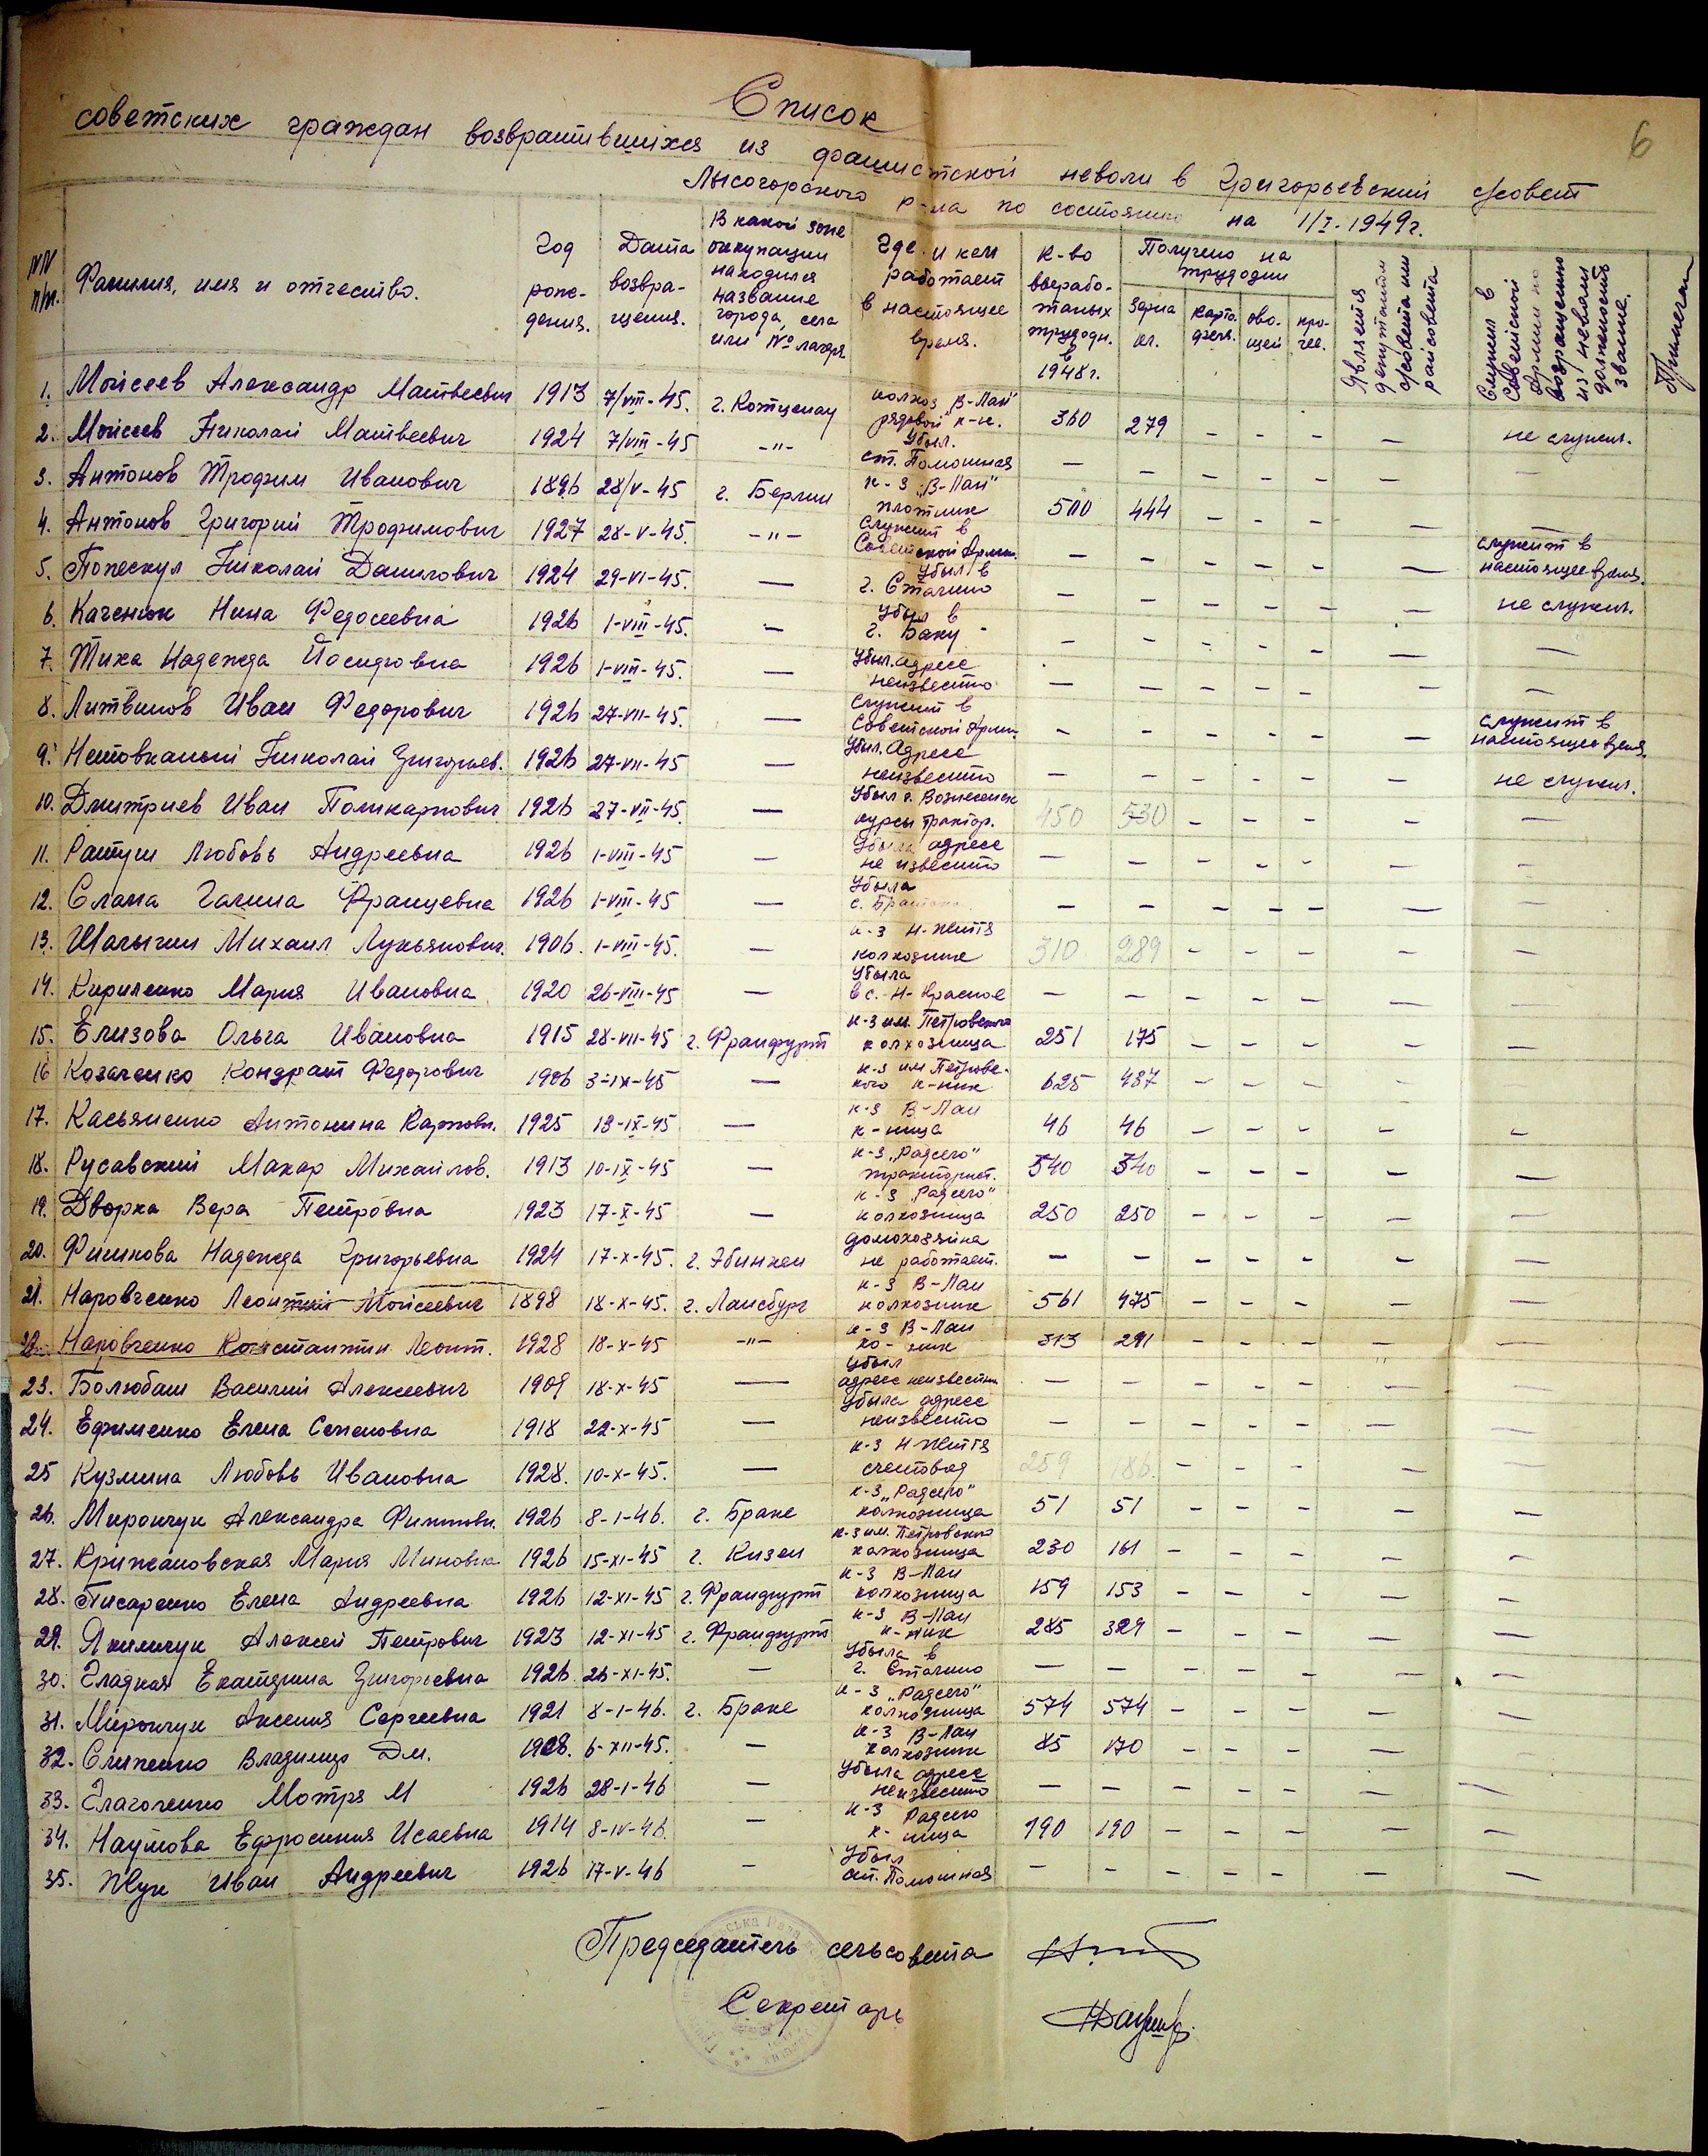 6
Список
советских граждан возвратившихся из фашистской неволи в Григорьевский с/совет
Лысогорского р-на по состоянию на 1/I-1949г.
№№ п/п. Фамилия, имя и отчество. Год рождения. Дата возвращения. В какой зоне оккупации находился название города, села или № лагеря Где и кем работает в настоящее время. К-во выработаных трудодн. в 1948г. Получено на трудодни зерна кг. картофеля. овощей прочее. Является депутатом с/совета или райсовета Служил в Советской Армии по возвращению из неволи должность звание. Примечан
1. Моисеев Александр Матвеевич 1913 7/VIII-45. г. Котценау колхоз "В-Лан" рядовой к-к. 360 279 – – – – не служил.
2. Моисеев Николай Матвеевич 1924 7/VIII-45 -"- Убыл. ст. Помошная – – – – – – –
3. Антонов Трофим Иванович 1896 28/V-45 г. Берлин к-з "В-Лан" плотник 500 444 – – – – –
4. Антонов Григорий Трофимович 1927 28-V-45. -"- Служит в Советской Армии. – – – – – – служит в настоящее время.
5. Попескул Николай Данилович 1924 29-VI-45. – Убыл в г. Сталино – – – – – – не служил.
6. Каченюк Нина Федосеевна 1926 1-VIII-45. – Убыл в г. Баку – – – – – – –
7. Тиха Надежда Йосиповна 1926 1-VIII-45. – Убыл. адресс неизвестно – – – – – – –
8. Литвинов Иван Федорович 1926 27-VII-45. – Служит в Советской Арми. – – – – – – служит в настоящее время.
9. Нетовканый Николай Григорьев. 1926 27-VII-45 – Убыл. Адресс неизвестно – – – – – – не служил.
10. Дмитриев Иван Поликарпович 1926 27-VII-45. – Убыл г. Вознесенск курсы трактор. 450 530 – – – – –
11. Ратуш Любовь Андреевна 1926 1-VIII-45 – Убыла адресс не известно – – – – – – –
12. Слама Галина Францевна 1926 1-VIII-45 – Убыла – – – – – – –
13. Шалыгин Михаил Лукьянович. 1906. 1-VIII-45. – к-з Н-Життя колхозник 310 289 – – – – –
14. Кириленко Мария Ивановна 1920 26-VIII-45 – Убыла в с. Н-Красное – – – – – – –
15. Елизова Ольга Ивановна 1915 28-VII-45 г. Франкфурт к-з им. Петровского колхозница 251 175 – – – – –
16 Козаченко Кондрат Федорович 1906 3-IX-45 – к-з им Петровского к-ник 625 487 – – – – –
17. Касьяненко Антонина Карповн. 1925 13-IX-45 – к-з В-Лан к-ница 46 46 – – – – –
18. Русавский Макар Михайлов. 1913 10-IX-45 – к-з "Радсело" тракторист. 540 540 – – – – –
19. Дворка Вера Петровна 1923 17-X-45 – к-з "Радсело" колхозница 250 250 – – – – –
20. Филикова Надежда Григорьевна 1924 17-X-45. г. Эбинген домохозяйка не работает. – – – – – – –
21. Наровченко Леонтий Моисеевич 1898 18-X-45. г. Лансбург к-з В-Лан колхозник 561 475 – – – – –
22. Наровченко Константин Леонт. 1928 18-X-45 -"- к-з В-Лан ко-ник 313 291 – – – – –
23. Болюбаш Василий Алексеевич 1909 18-X-45 – Убыл адресс неизвестно – – – – – – –
24. Ефименко Елена Семеновна 1918 22-X-45 – Убыла адресс неизвестно – – – – – – –
25 Кузмина Любовь Ивановна 1928. 10-X-45. – к-з Н-Життя счетовод 259 186. – – – – –
26. Мирончук Александра Филипповн. 1926 8-I-46. г. Браке к-з "Радсело" колхозница 51 51 – – – – –
27. Крижановская Мария Миновна 1926 15-XI-45 г. Кизен к-з им. Петровского колхозница 230 161 – – – – –
28. Писаренко Елена Андреевна 1926 12-XI-45 г. Франкфурт к-з В-Лан колхозница 159 153 – – – – –
29. Якимчук Алексей Петрович 1923 12-XI-45 г. Франкфурт к-з В-Лан к-ник 285 329 – – – – –
30. Гладкая Екатерина Григорьевна 1926. 26-XI-45. – Убыла в г. Сталино – – – – – – –
31. Мирончук Аксения Сергеевна 1921 8-I-46. г. Браке к-з "Радсело" колхозница 574 574 – – – – –
32. Слипенко Владимир Дм. 1928. 6-XII-45. – к-з В-Лан колхозник 85 170 – – – – –
33. Глаголенко Мотря М 1926 28-I-46 – Убыла адресс неизвестно – – – – – – –
34. Наумова Ефросиния Исаевна 1914 8-IV-46. – к-з Радсело к-ница 190 190 – – – – –
35. Жук Иван Андреевич 1926 17-V-46 – Убыл ст. Помошная – – – – – – –
Председатель сельсовета
Секретарь